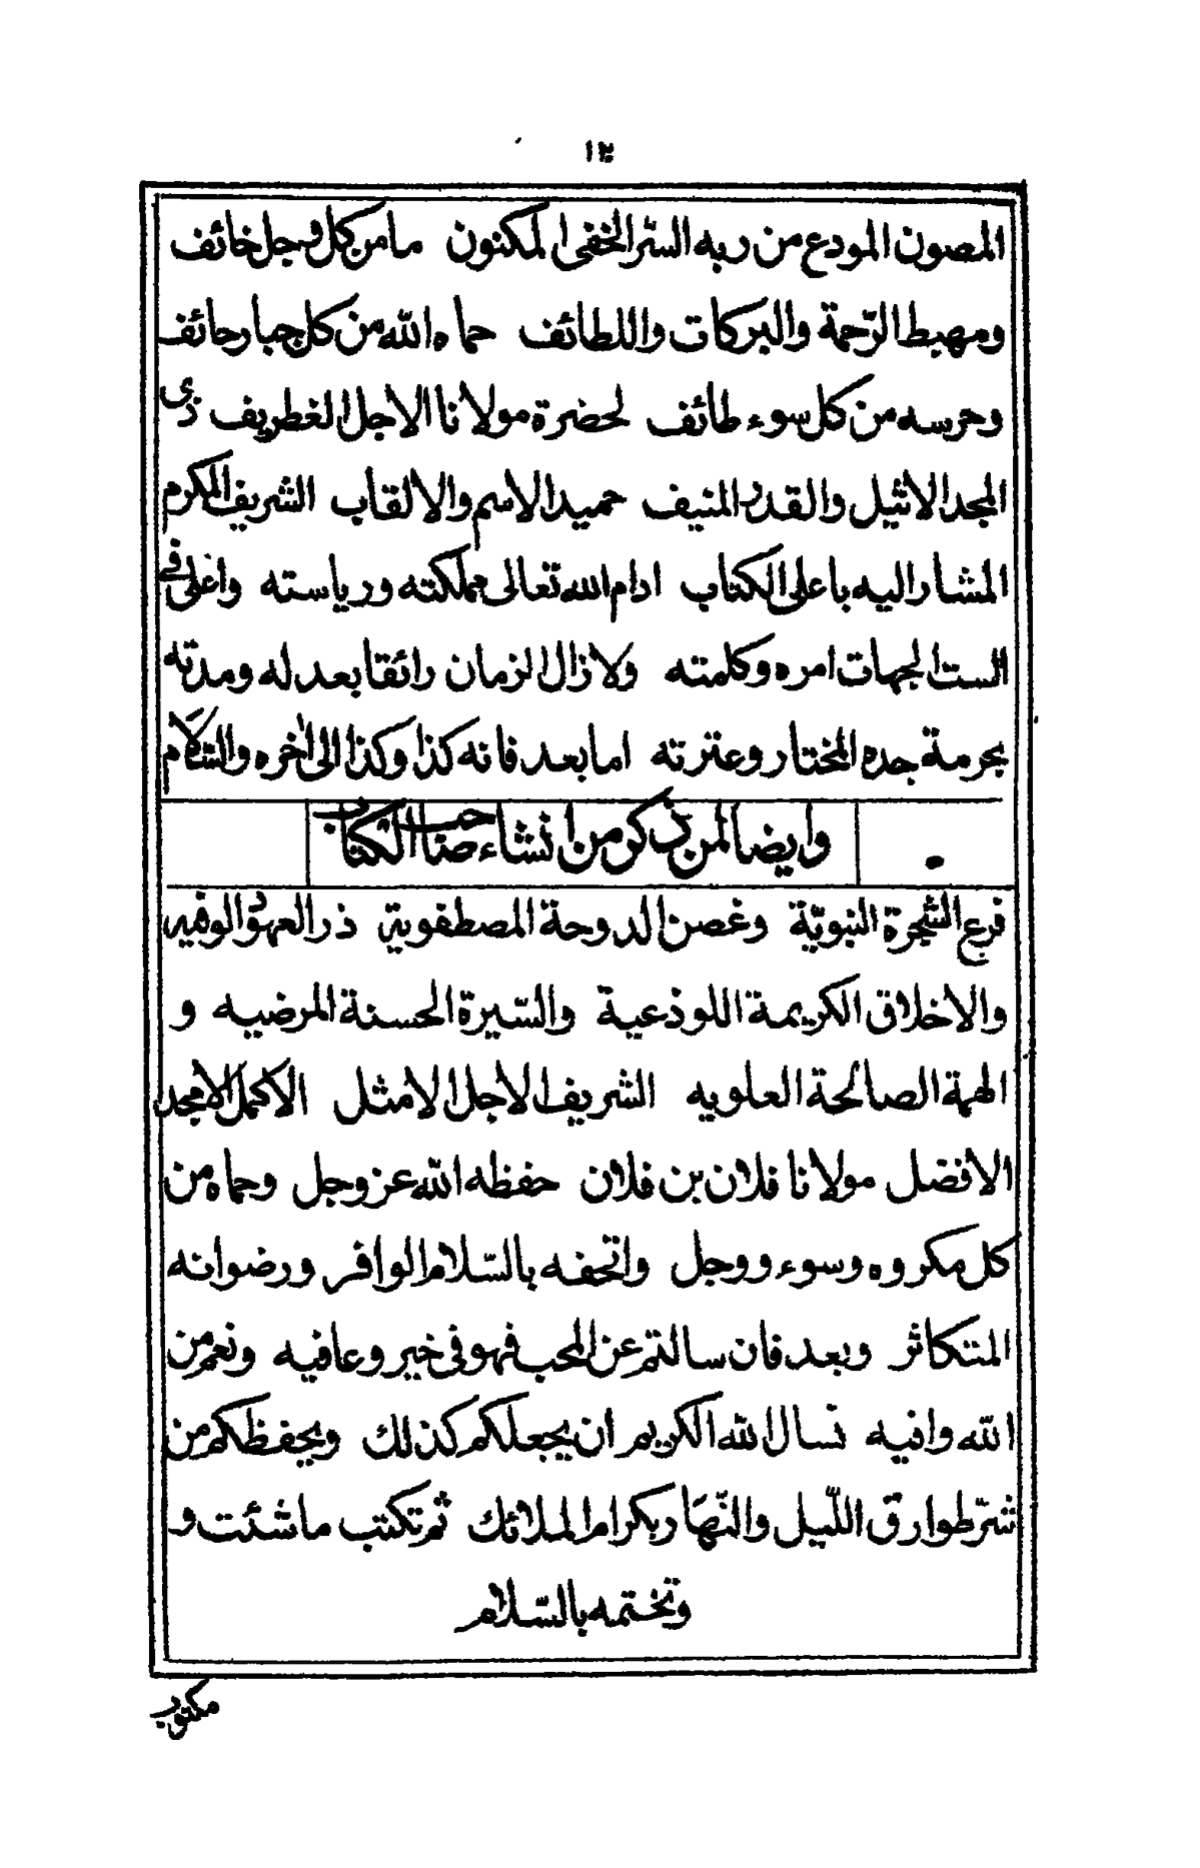 ١٢
المصون المودع من ربه السّر الخفى المكنون مامن كل وجل خائف
ومهبط الرّحمة والبركات واللطائف حماه الله من كل جبار حائف
وحرسه من كل سوء طائف لحضرة مولانا الاجل الغطريف ذى
المجد الاثيل والقدر المنيف حميد الاسم والالقاب الشريف المكرم
المشار اليه باعلى الكتاب ادام الله تعالى مملكته ورياسته واعلى فى
الست الجهات امره وكلمته ولا زال الزمان رائقا بعدله ومدته
بحرمة جده المختار وعترته اما بعد فانه كذا وكذا الى اخره والسّلام
وايضا لمن ذكر من انشاء صاحب الكتاب
فرع الشجرة النبويّة وغصن الدوحة المصطفوية ذر العهود الوفيه
والاخلاق الكريمة اللوذعية والسّيرة الحسنة المرضيه و
الهمة الصالحة العلويه الشريف الاجل الامثل الاكمل الامجد
الافضل مولانا فلان بن فلان حفظه الله عز وجل وحماه من
كل مكروه وسوء ووجل واتحفه بالسّلام الوافر ورضوانه
المتكاثر وبعد فان سالتم عن المحب فهو فى خير وعافيه ونعم من
الله وافيه نسال الله الكريم ان يجعلكم كذلك ويحفظكم من
شرّ طوارق اللّيل والنّهار بكرام الملائك ثم تكتب ما شئت و
وتختمه بالسّلام
مكتوب